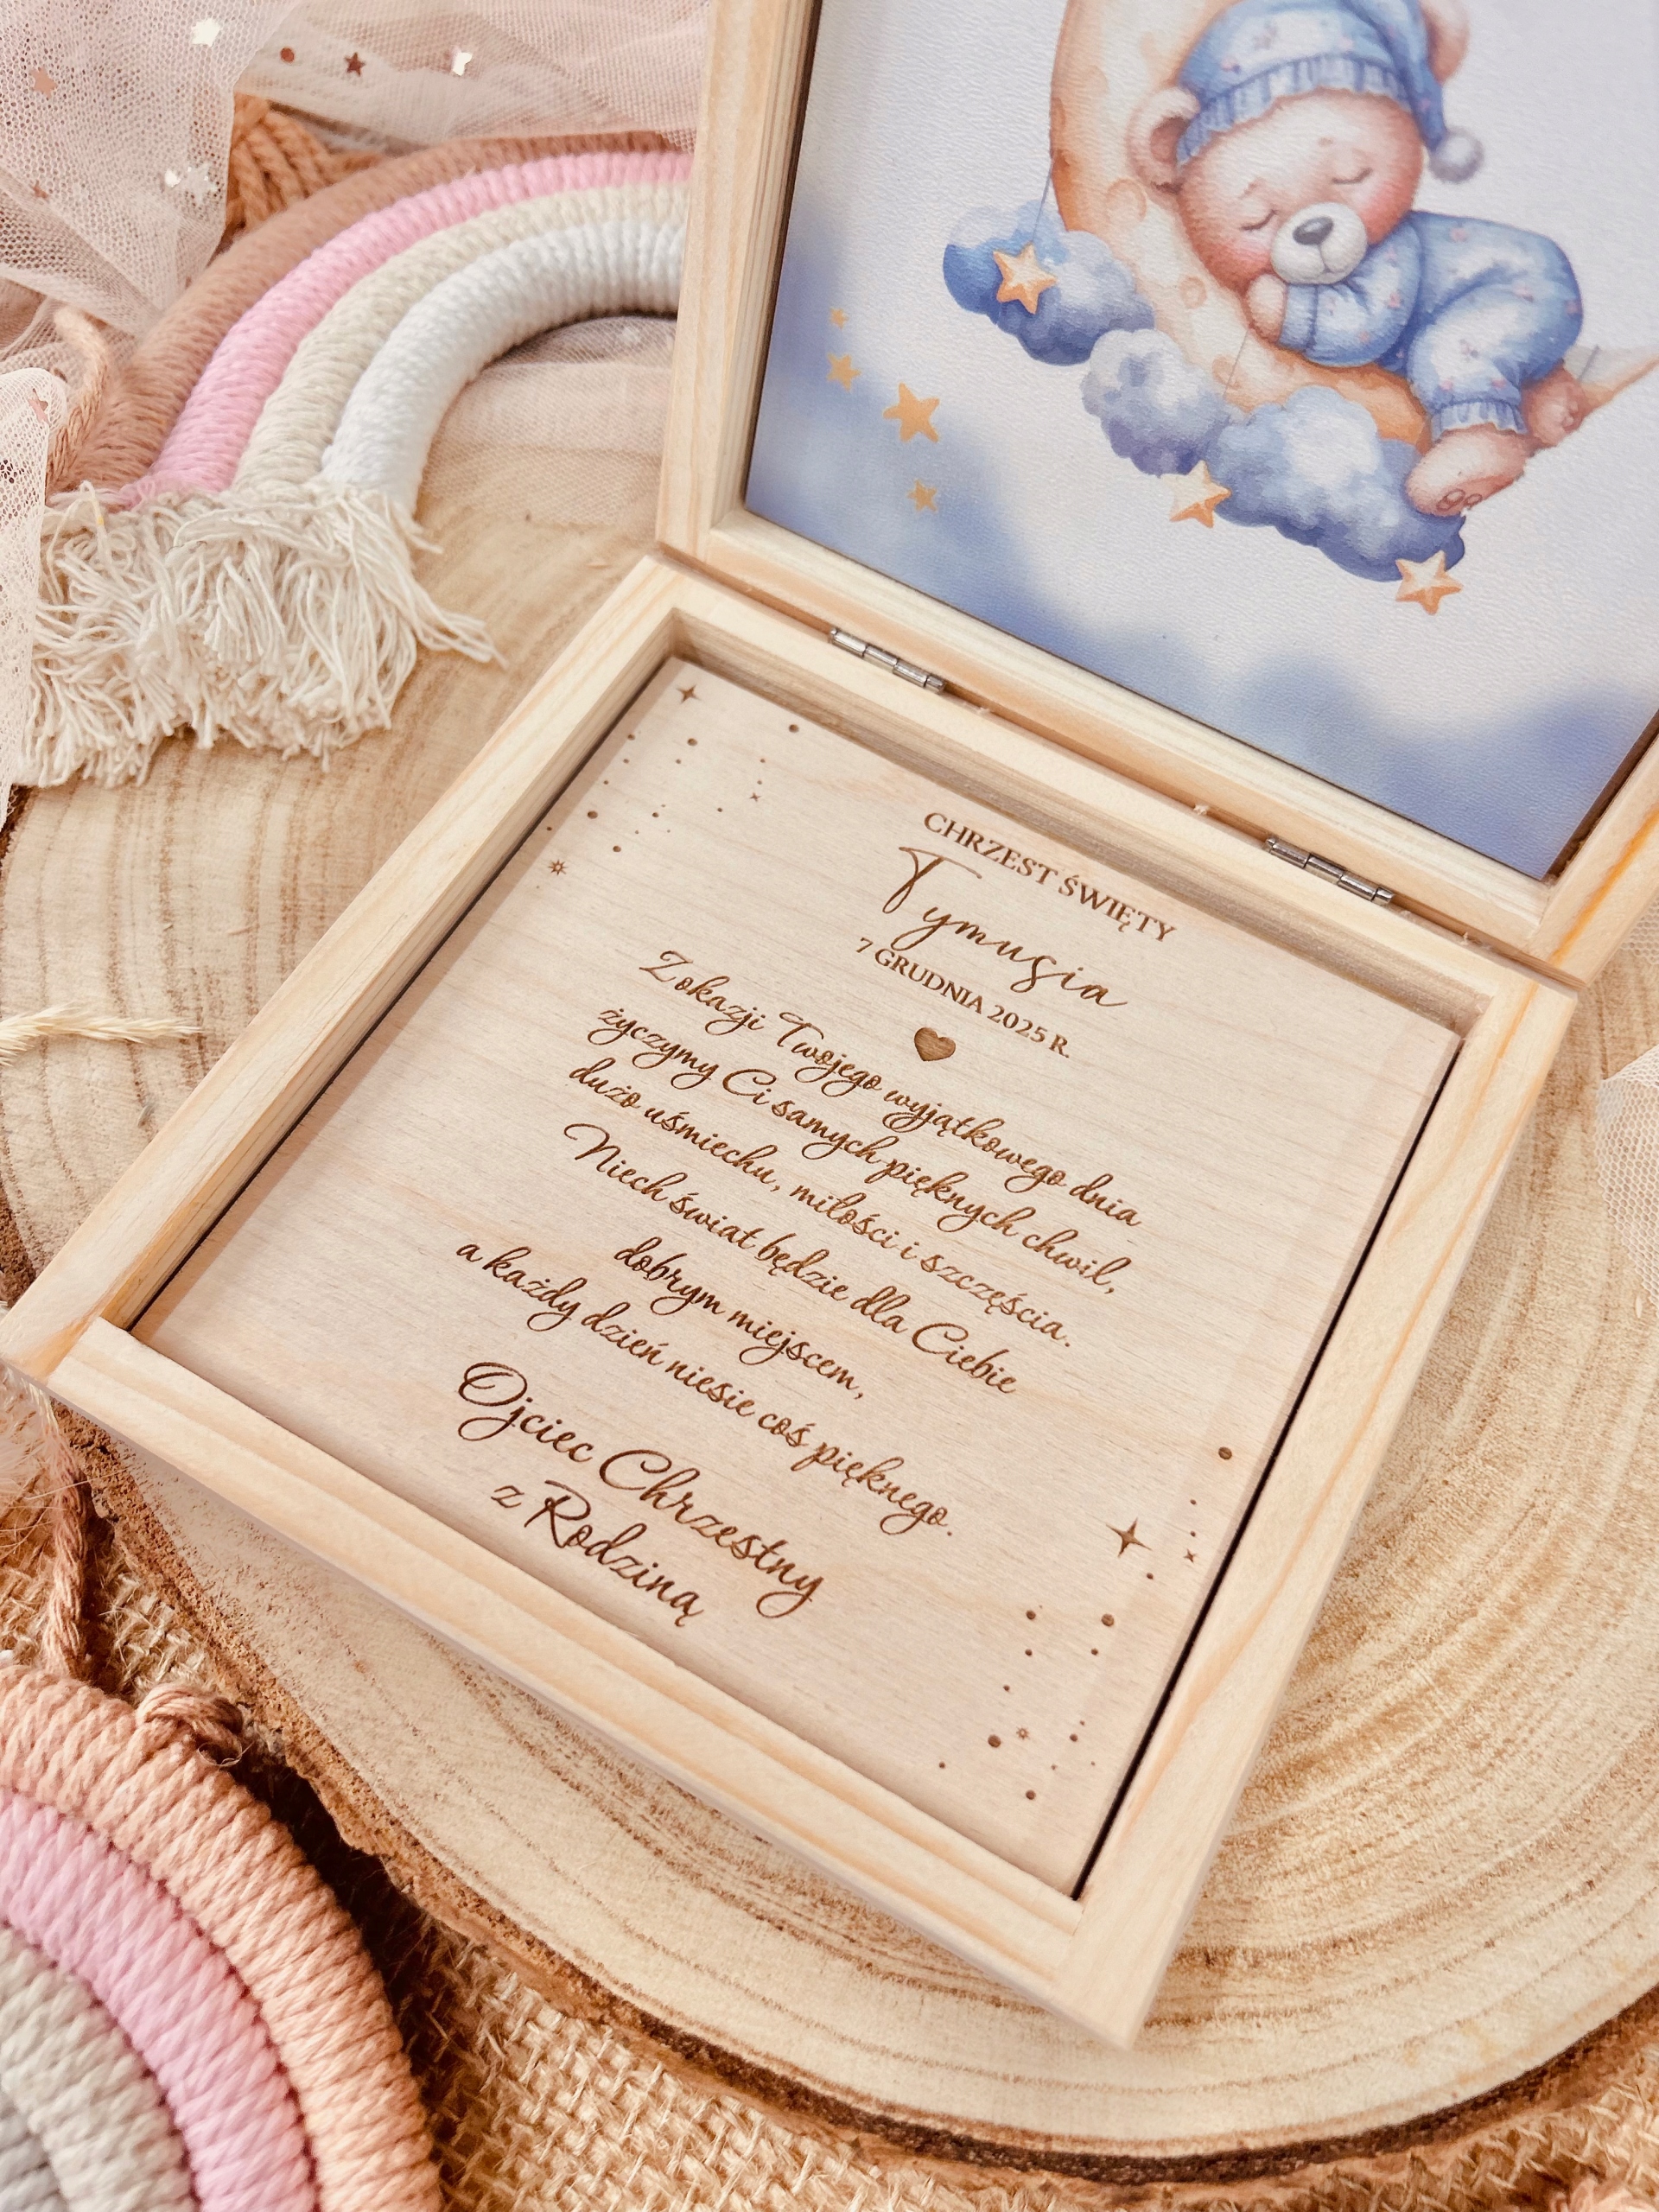 CHRZEST ŚWIĘTY
Tymusia
7 GRUDNIA 2025 R.
Z okazji Twojego wyjątkowego dnia
życzymy Ci samych pięknych chwil,
dużo uśmiechu, miłości i szczęścia.
Niech świat będzie dla Ciebie
dobrym miejscem,
a każdy dzień niesie coś pięknego.
Ojciec Chrzestny
z Rodziną